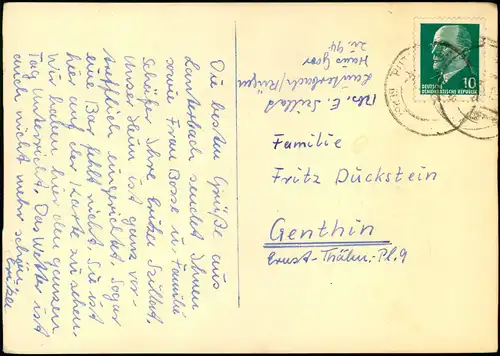 Die besten Grüße aus
Lauterbach sendet Ihnen
sowie Frau Bosse u. Familie
Schäfer Ihre Erika Szillat.
Unser Heim ist ganz vor-
trefflich eingerichtet. Sogar
eine Bar fehlt nicht. Sie ist
hier auf der Karte zu sehen.
Wir haben hier den ganzen
Tag Unterricht. Das Wetter ist
auch nicht mehr schön.
Erika
Abs. E. Szillat
Lauterbach/Rügen
Haus Goor
Zi. 44
PUT
DEUTSCHE
DEMOKRATISCHE REPUBLIK
10
Familie
Fritz Dückstein
Genthin
Ernst-Thälm.-Pl. 9